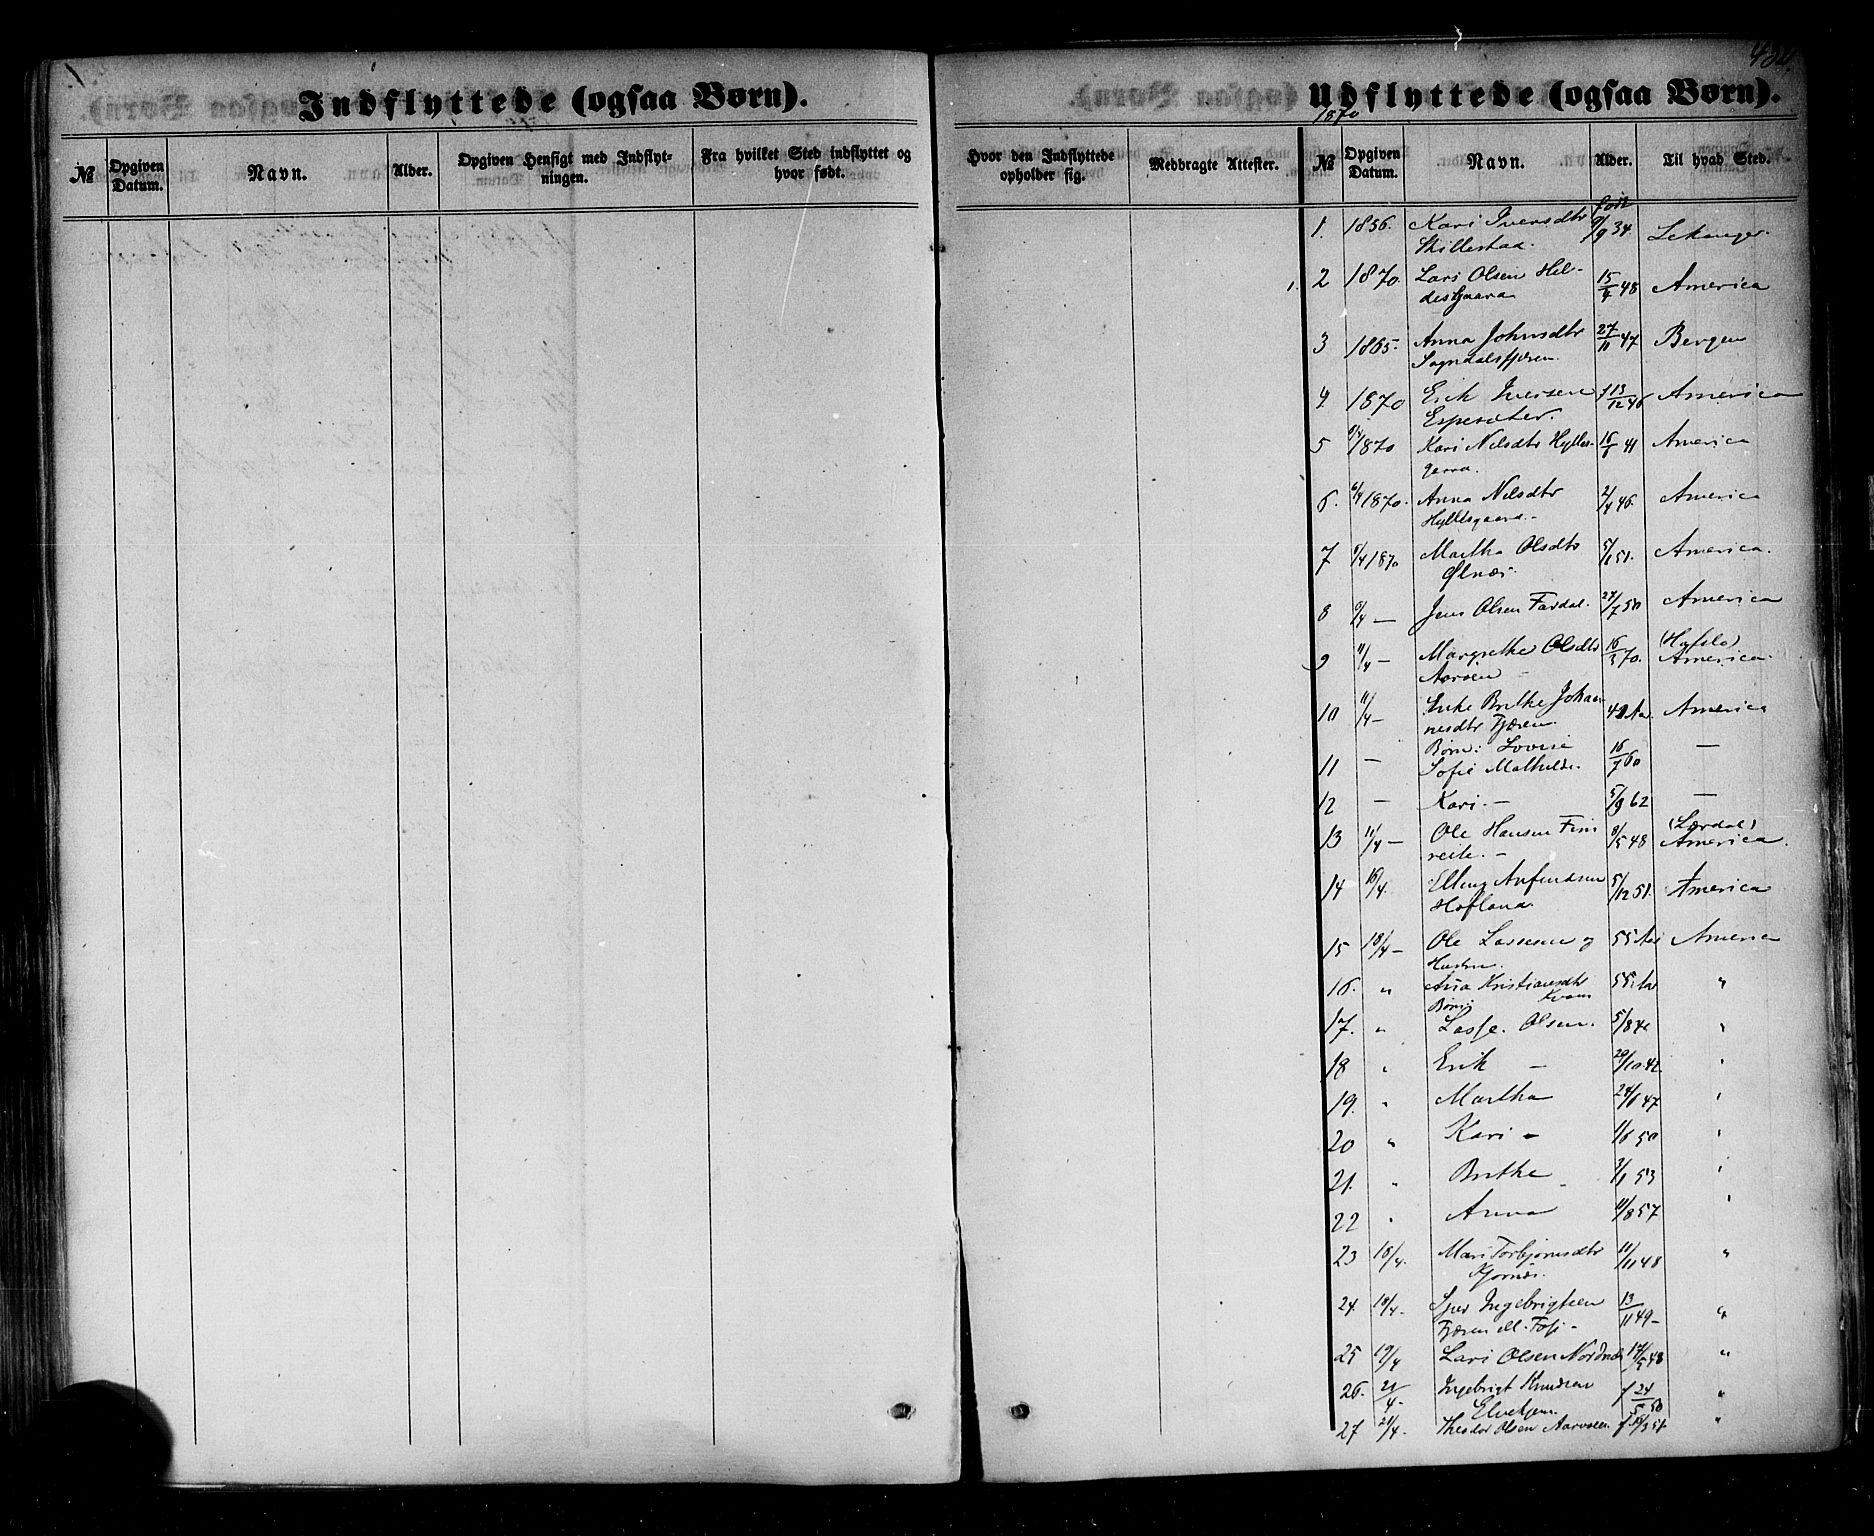 Indflyttede (ogsaa Børn).
№ Opgiven Datum. Navn. Alder. Opgiven Hensigt med Indflytningen. Fra hvilket Sted indflyttet og hvor født.
Udflyttede (ogsaa Børn).
1870
Hvor den Indflyttede opholder sig. Meddragte Attester. № Opgiven Datum. Navn. Alder. Til hvad Sted.
født
1. 1856. Kari Iversdtr 9/9 34. Lekanger.
Skillestad.
1. 2 1870. Lars Olsen Hel- 15/4 48 America
desgaard
3 1865. Anna Johnsdtr 27/10 47 Bergen
Sogndalsfjæren.
4 1870 Erik Iversen f 13/12 46 America
Espesæter.
5 6/4 1870 Kari Nilsdtr Hylles- 16/6 41 America
gaard.
6. 6/4 1870. Anna Nilsdtr 2/4 46. America
Hyllesgaard.
7 6/4 1870 Martha Olsdtr 5/1 51. America.
Ølnæs.
8 6/4 — Jens Olsen Fardal. 24/7 50 America
9 11/4 — Margrethe Olsdtr 16/3 70. (Hafslo) America.
Aarøen
10 11/4 — Enke Brithe Johan- 42 Aar America
nesdtr Fjæren.
Børn: Lovise
11 — Sofie Mathilde. 16/7 60 —
12 — Kari. — 5/9 62 —
13 11/4 — Ole Hansen Fim 8/5 48 (Lærdal) America.
reite. —
14 16/4. Elling Anfindsen 5/12 51. America
Hofland.
15 18/4 — Ole Lassesen og 55 Aar America
Hustru.
16. " Ana Kristiansdtr 55 Aar "
Børn: Kvam
17. " Lasse Olsen. 5/8 42 "
18 " Erik — 20/10 42 "
19. " Martha 24/6 47 "
20 " Kari — 1/6 50 "
21. " Brithe 3/1 53 "
22 " Anna 11/8 57 "
23 18/4. Mari Torbjørnsdtr 10/11 48 "
Kjørnæs.
24. 18/4. Sjur Ingebrigtsen 13/11 49 — "
Fjæren
25 19/4 Lars Olsen Nordnæs 14/5 48 "
26. 21/4 — Ingebrigt Knudsen f 24/5 50 "
27 21/4. Theodor Olsen Aarøen "